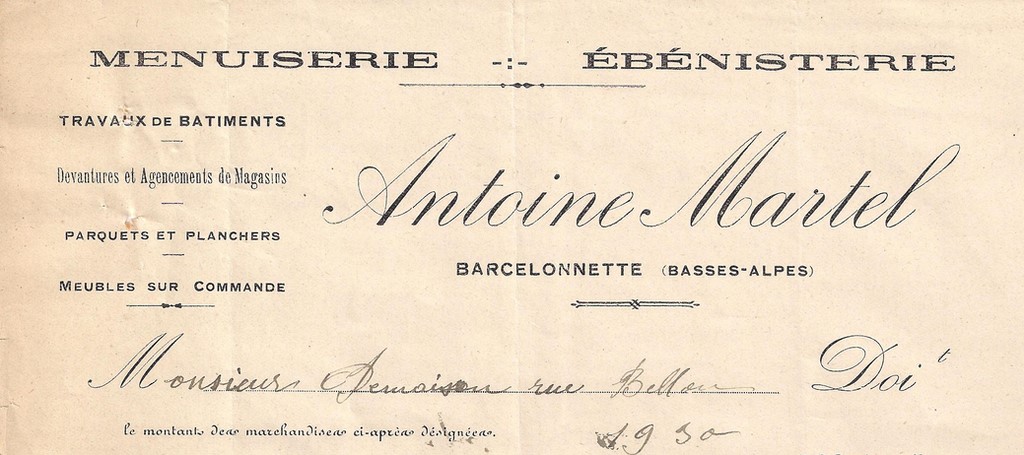 MENUISERIE -:- ÉBÉNISTERIE
TRAVAUX DE BATIMENTS
Devantures et Agencements de Magasins
PARQUETS ET PLANCHERS
MEUBLES SUR COMMANDE
Antoine Martel
BARCELONNETTE (BASSES-ALPES)
Monsieur Demaison rue Bellon Doit
le montant des marchandises ci-après désignées.
1930